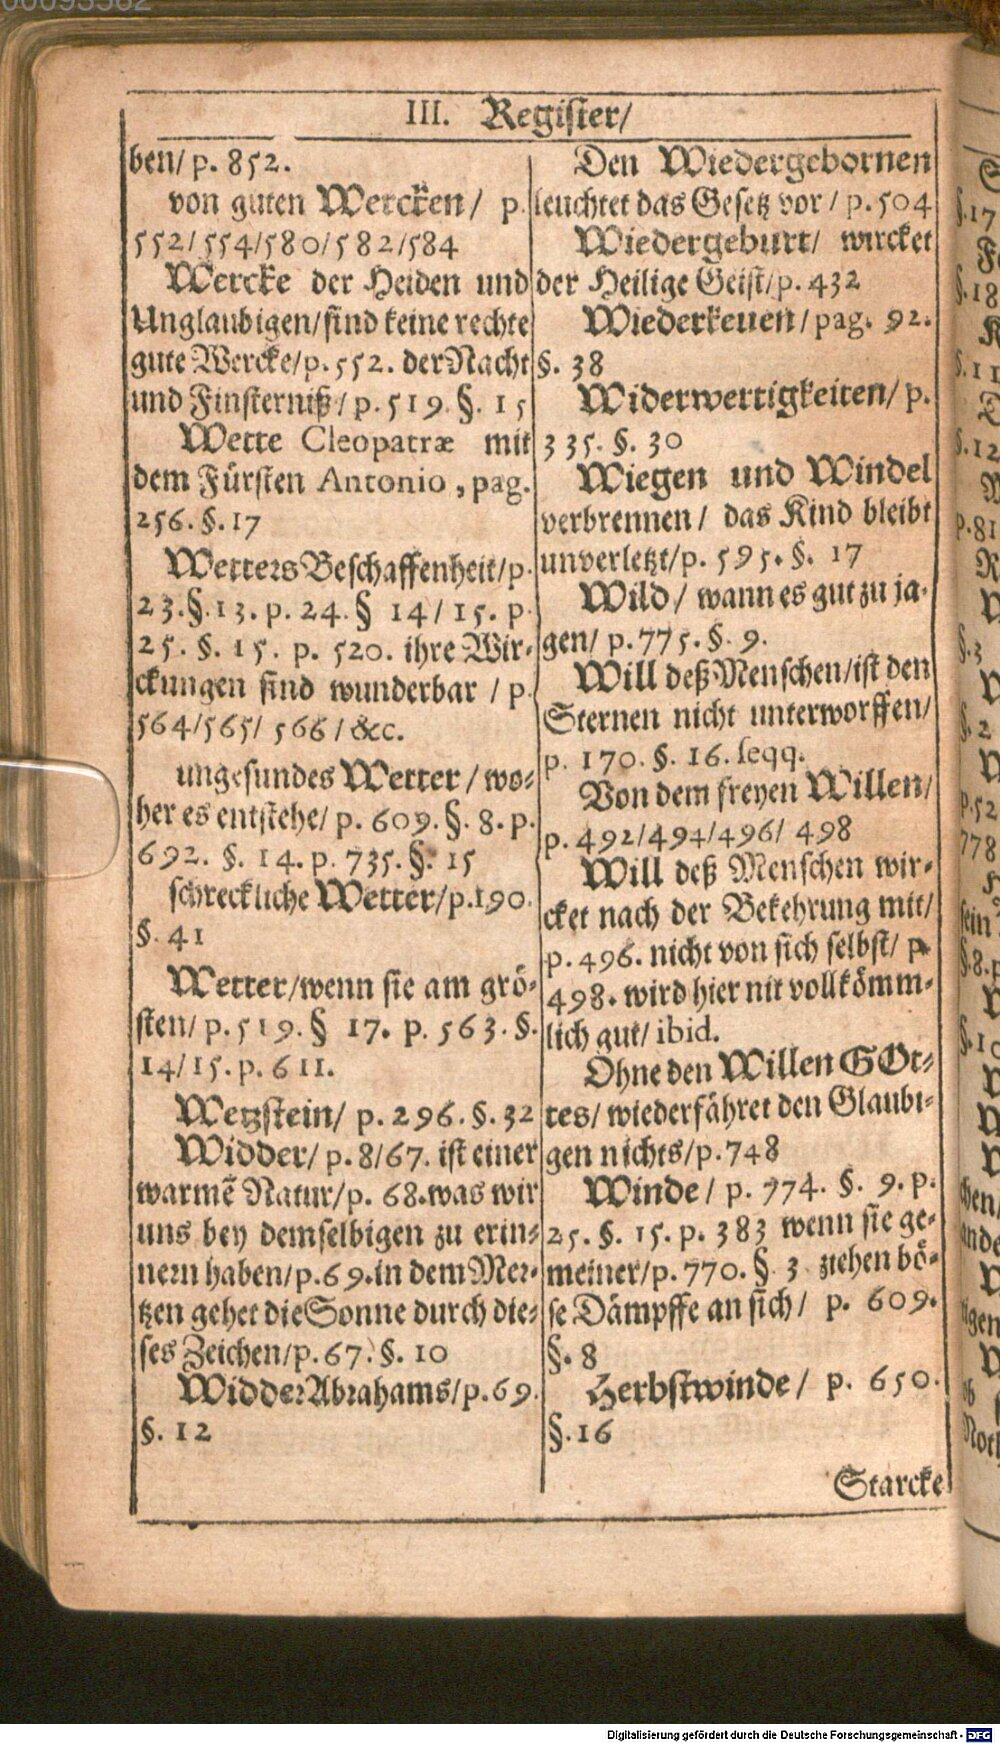 III. Register/
ben/ p. 852.
von guten Wercken/ p.
552/554/580/582/584
Wercke der Heiden und
Unglaubigen/sind keine rechte
gute Wercke/p.552. der Nacht
und Finsterniß/p.519.§.15
Wette Cleopatræ mit
dem Fürsten Antonio, pag.
256.§.17
Wetters Beschaffenheit/p.
23.§.13. p. 24.§ 14/15. p.
25. §. 15. p. 520. ihre Wir-
ckungen sind wunderbar / p.
564/565/ 566 / &c.
ungesundes Wetter / wo-
her es entstehe/ p. 609.§. 8. p.
692. §. 14. p. 735. §. 15
schreckliche Wetter/p.190.
§. 41
Wetter/wenn sie am grö-
sten/p.519.§ 17. p. 563. §.
14/15. p. 611.
Wetzstein/ p. 296.§. 32
Widder/ p. 8/67. ist einer
warmē Natur/p. 68.was wir
uns bey demselbigen zu erin-
nern haben/p.69.in dem Mer-
tzen gehet die Sonne durch die-
ses Zeichen/p.67.§. 10
Widder Abrahams/p.69.
§. 12
Den Wiedergebornen
leuchtet das Gesetz vor / p.504
Wiedergeburt/ wircket
der Heilige Geist/p. 432
Wiederkeuen/pag. 92.
§. 38
Widerwertigkeiten/ p.
335. §. 30
Wiegen und Windel
verbrennen / das Kind bleibt
unverletzt/p. 595. §. 17
Wild / wann es gut zu ja-
gen/ p.775.§. 9.
Will deß Menschen/ist den
Sternen nicht unterworffen/
p. 170. §. 16. seqq.
Von dem freyen Willen/
p. 492/494/496/ 498
Will deß Menschen wir-
cket nach der Bekehrung mit/
p. 496. nicht von sich selbst/ p.
498. wird hier nit vollkömm-
lich gut/ ibid.
Ohne den Willen GOt-
tes/ wiederfähret den Glaubi-
gen nichts/p.748
Winde / p. 774. §. 9. p.
25. §. 15. p. 383 wenn sie ge-
meiner/p. 770. § 3 ziehen bö-
se Dämpffe an sich/ p. 609.
§. 8
Herbstwinde / p. 650.
§. 16
Starcke
Digitalisierung gefördert durch die Deutsche Forschungsgemeinschaft - DFG